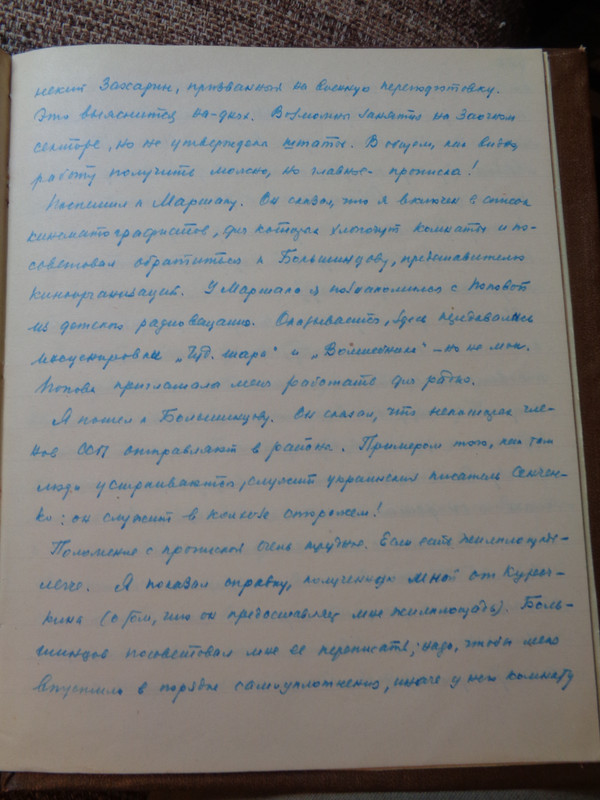 некий Захарин, призванный на военную переподготовку.
Это выяснится на-днях. Возможны занятия на Заочном
секторе, но не утверждены штаты. В общем, как вижу,
работу получить можно, но главное - прописка!
Поспешил к Маршаку. Он сказал, что я включен в список
кинематографистов, для которых хлопочут комнаты и по-
советовал обратиться к Большинцову, представителю
киноорганизаций. У Маршака я познакомился с Поповой
из детского радиовещания. Оказывается, здесь передавались
инсценировки „Чуд. шара" и „Волшебника" - но не мои.
Попова приглашала меня работать для радио.
Я пошел к Большинцову. Он сказал, что некоторых чле-
нов ССП отправляют в районы. Примером того, как там
люди устраиваются, служит украинский писатель Сенчен-
ко: он служит в колхозе сторожем!
Положение с пропиской очень трудное. Если есть жилплощадь-
легче. Я показал справку, полученную мной от Куроч-
кина (о том, что он предоставляет мне жилплощадь). Боль-
шинцов посоветовал мне её переписать; надо, чтобы меня
впустили в порядке самоуплотнения, иначе у него комнату